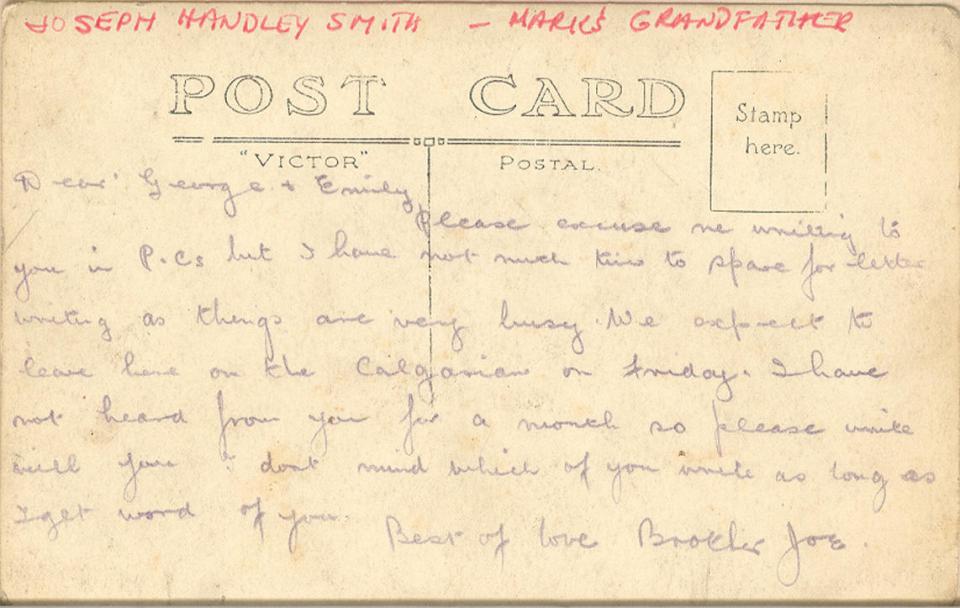 JOSEPH HANDLEY SMITH - MARK'S GRANDFATHER
POST CARD
Stamp
here.
"VICTOR" POSTAL.
Dear George & Emily,
Please excuse me writing to
you in P.Cs but I have not much time to spare for letter
writing as things are very busy. We expect to
leave here on the Calgarian on Friday. I have
not heard from you for a month so please write
will you I dont mind which of you write as long as
I get word of you.
Best of love Brother Joe.